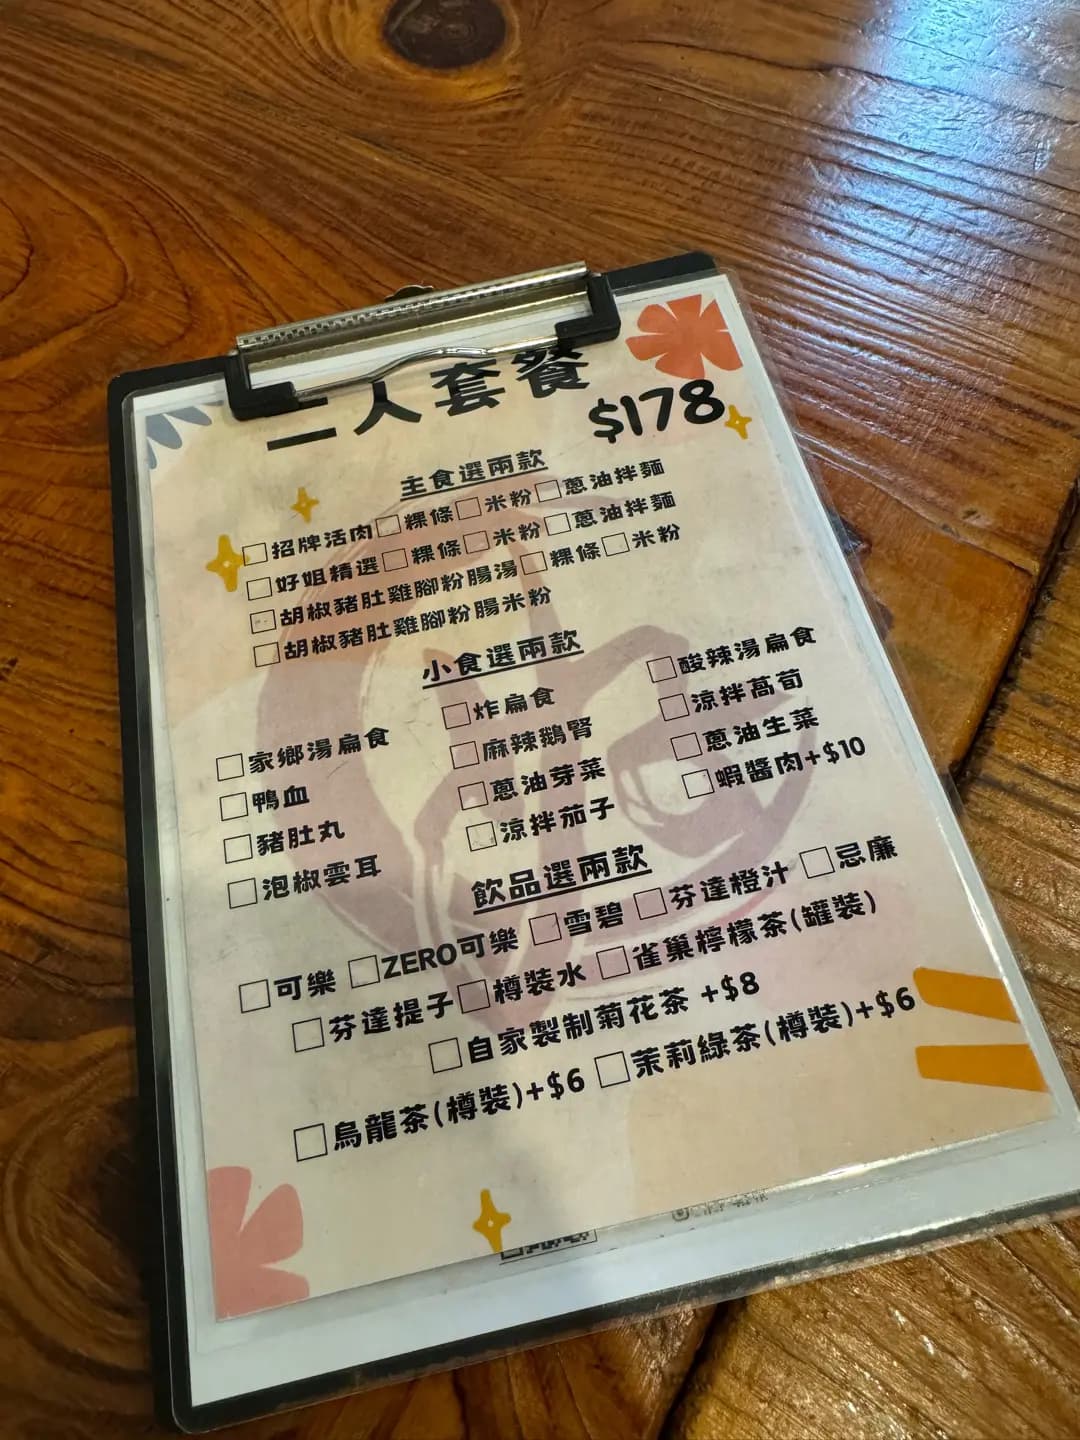 二人套餐
$178
主食選兩款
□招牌活肉□粿條□米粉□蔥油拌麵
□好姐精選□粿條□米粉□蔥油拌麵
□胡椒豬肚雞腳粉腸湯□粿條□米粉
□胡椒豬肚雞腳粉腸米粉
小食選兩款
□家鄉湯扁食 □炸扁食 □酸辣湯扁食
□鴨血 □麻辣鵝腎 □涼拌萵荀
□豬肚丸 □蔥油芽菜 □蔥油生菜
□泡椒雲耳 □涼拌茄子 □蝦醬肉+$10
飲品選兩款
□可樂 □ZERO可樂 □雪碧 □芬達橙汁 □忌廉
□芬達提子□樽裝水 □雀巢檸檬茶(罐裝)
□自家製制菊花茶 +$8
□烏龍茶(樽裝)+$6 □茉莉綠茶(樽裝)+$6